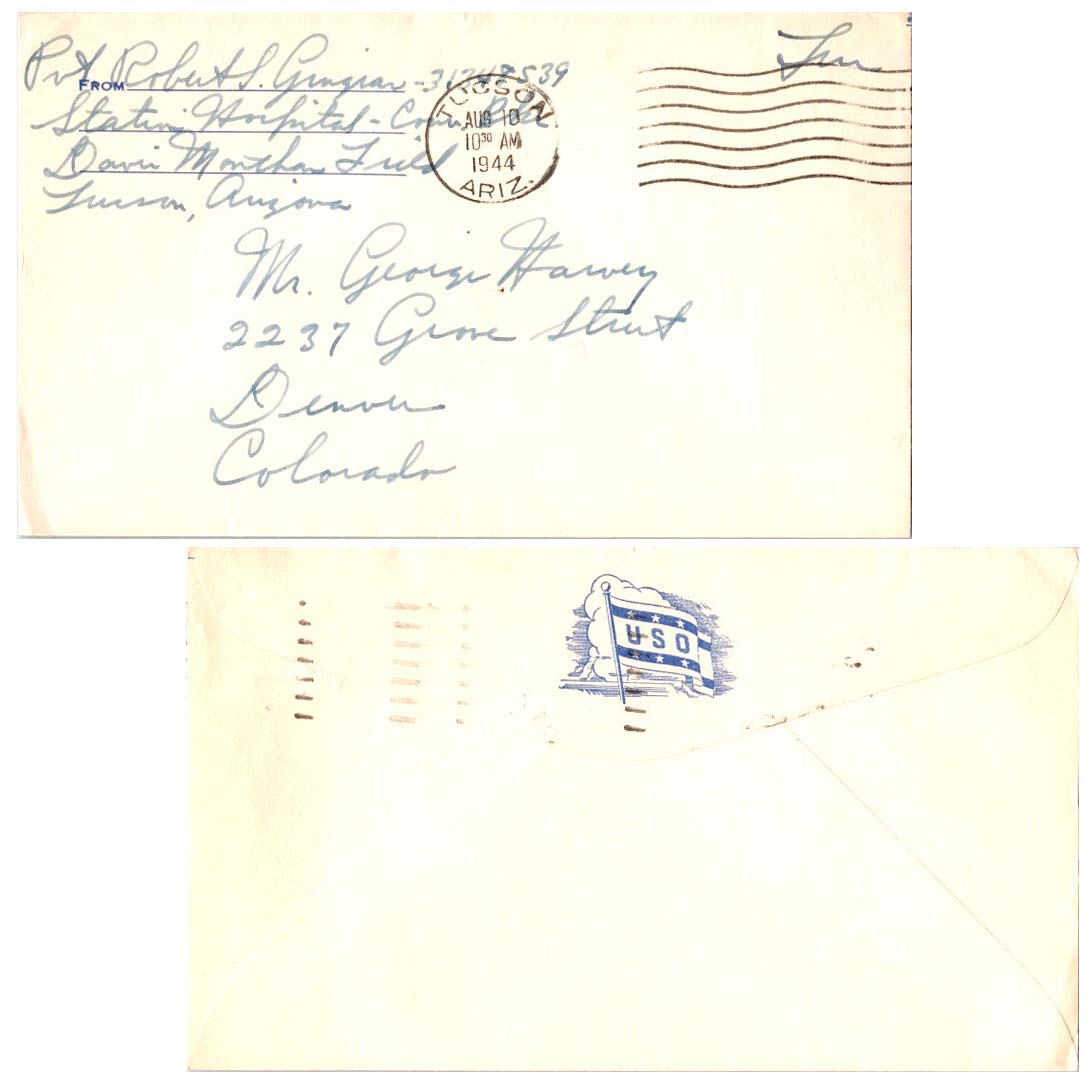 Pvt Robert S. Gingras - 31
FROM
Free
Station Hospital -
Davis Monthan Field
Tucson, Arizona
TUCSON
AUG 10
10 30 AM
1944
ARIZ.
Mr. George Harvey
2237 Grove Street
Denver
Colorado
USO